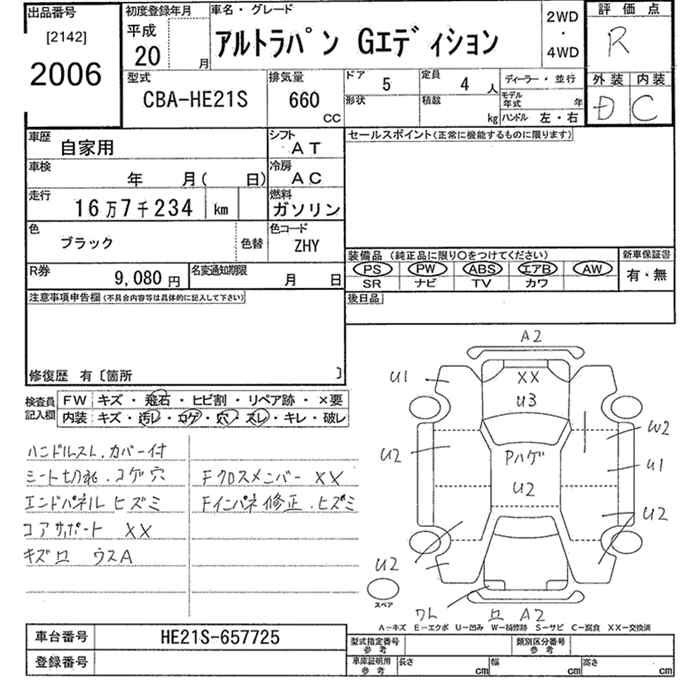 出品番号
[2142]
2006
初度登録年月
平成
20 月
車名・グレード
アルトラパン Gエディション
2WD
・
4WD
評価点
R
型式
CBA-HE21S
排気量
660 CC
ドア 5
形状
定員 4 人
積載 kg
ディーラー・並行
モデル年式 年
ハンドル 左・右
外装 内装
D C
車歴
自家用
シフト
AT
車検
年 月( 日)
冷房
AC
走行
16万7千234 km
燃料
ガソリン
色
ブラック
色替
色コード
ZHY
R券
9,080 円
名変通知期限
月 日
セールスポイント(正常に機能するものに限ります)
装備品(純正品に限り○をつけてください)
PS PW ABS エアB AW
SR ナビ TV カワ
新車保証書
有・無
後日品
注意事項申告欄(不具合内容等は具体的に記入して下さい)
修復歴 有〔箇所 〕
検査員記入欄
FW キズ・飛石・ヒビ割・リペア跡・×要
内装 キズ・汚レ・コゲ・穴・スレ・キレ・破レ
ハンドルスレ、カバー付
シート切れ、コゲ穴
エンドパネル ヒズミ
コアサポート XX
キズ ロ ウスA
Fクロスメンバー XX
Fインパネ修正、ヒズミ
A2
U1
XX
U3
W2
U2
Pハゲ
U1
U2
U2
U2
スペア
ワレ
ロ A2
A−キズ E−エクボ U−凹み W−補修跡 S−サビ C−腐食 XX−交換済
車台番号
HE21S-657725
登録番号
型式指定番号
参考
類別区分番号
参考
車庫証明用
参考
長さ cm
幅 cm
高さ cm